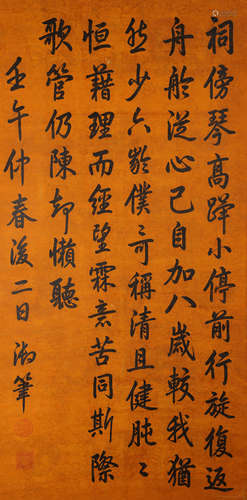 祠傍琴高蹕小停前行旋復返
舟於從心已自加八歲較我猶
然少六齡僕〻可稱清且健肫〻
恒藉理而經望霖意苦同斯際
歌管仍陳却懶聽
壬午仲春後二日御筆